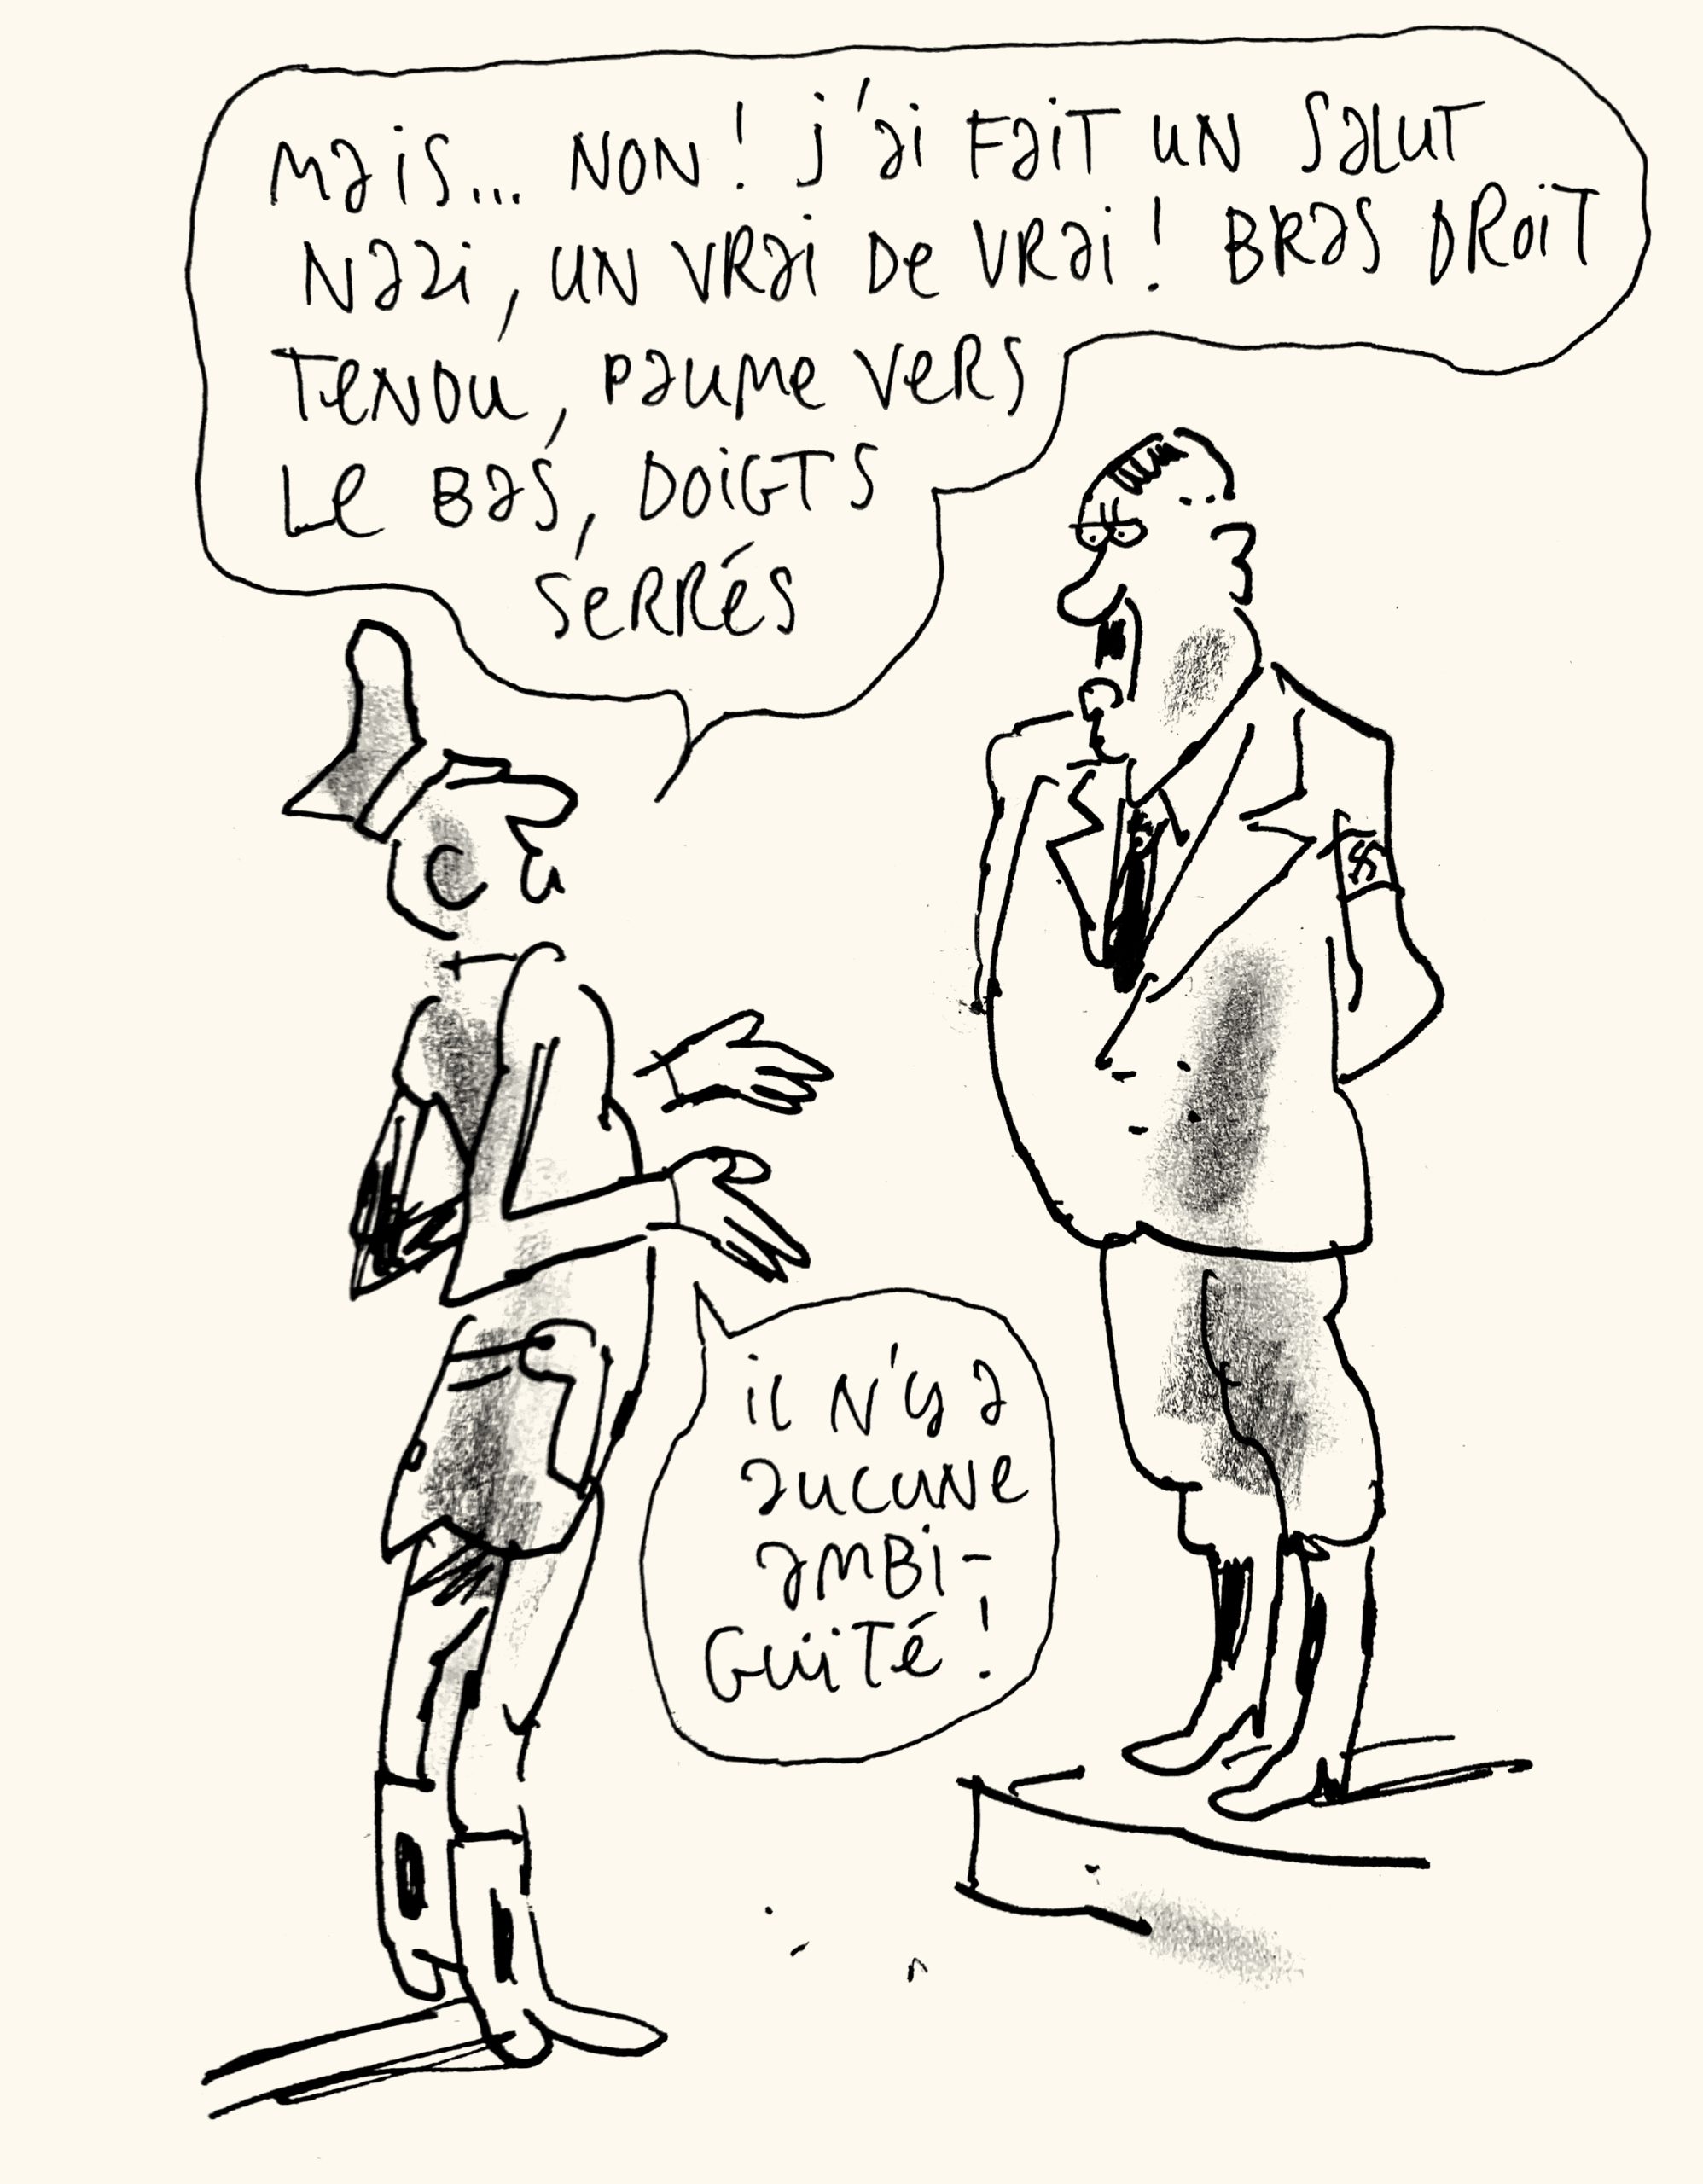 Mais... NON! j'ai fait un salut
Nazi, un vrai de vrai! Bras droit
tendu, paume vers
le bas, doigts
serrés
il n'y a
aucune
ambi-
guïté!